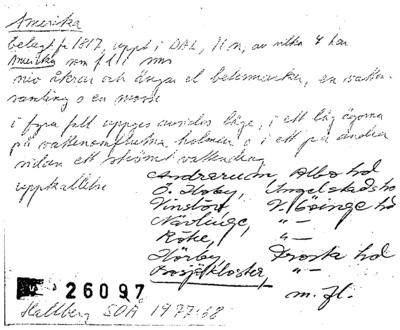 Amerika
belagt fr 1817, uppt i DAL, 11 n, av vilka 4 har
Amerika som f.l. i sms
niv åkrar och ängar el betesmarker, en vatten-
samling o en mosse
i fyra fall uppges avsides läge, i ett låg ägorna
på vattenomflutna holmar o i ett på andra
sidan ett strömt vattendrag
uppkallelse
Andrarum, Albo hd
Ö. Hoby, Ingelstads hd
Vinslöv, V. Göinge hd
Nävlinge, –"–
Röke, –"–
Hörby, Frosta hd
Bosjökloster, –"–
m. fl.
26097
Hallberg SOÅ 1977:38